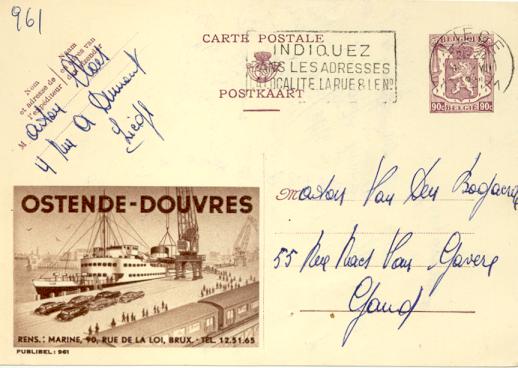 961
CARTE POSTALE
POSTKAART
INDIQUEZ
DANS LES ADRESSES
LOCALITE, LA RUE & LE No
BELGIE
90c 90c
BELGIQUE
Nom
et adresse de
l'expéditeur
Naam
en adres van
den afzender
M
4 Rue A
Liège
M
Van Den
55 Rue Van Gavere
Gand
OSTENDE-DOUVRES
RENS.: MARINE, 90, RUE DE LA LOI, BRUX. - TEL. 12.51.65
PUBLIBEL: 961